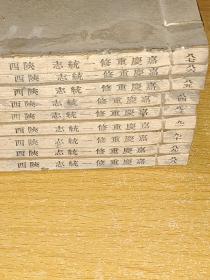 嘉慶重修一統志 陝西
嘉慶重修一統志 陝西
嘉慶重修一統志 陝西
嘉慶重修一統志 陝西
嘉慶重修一統志 陝西
嘉慶重修一統志 陝西
嘉慶重修一統志 陝西
嘉慶重修一統志 陝西
嘉慶重修一統志 陝西